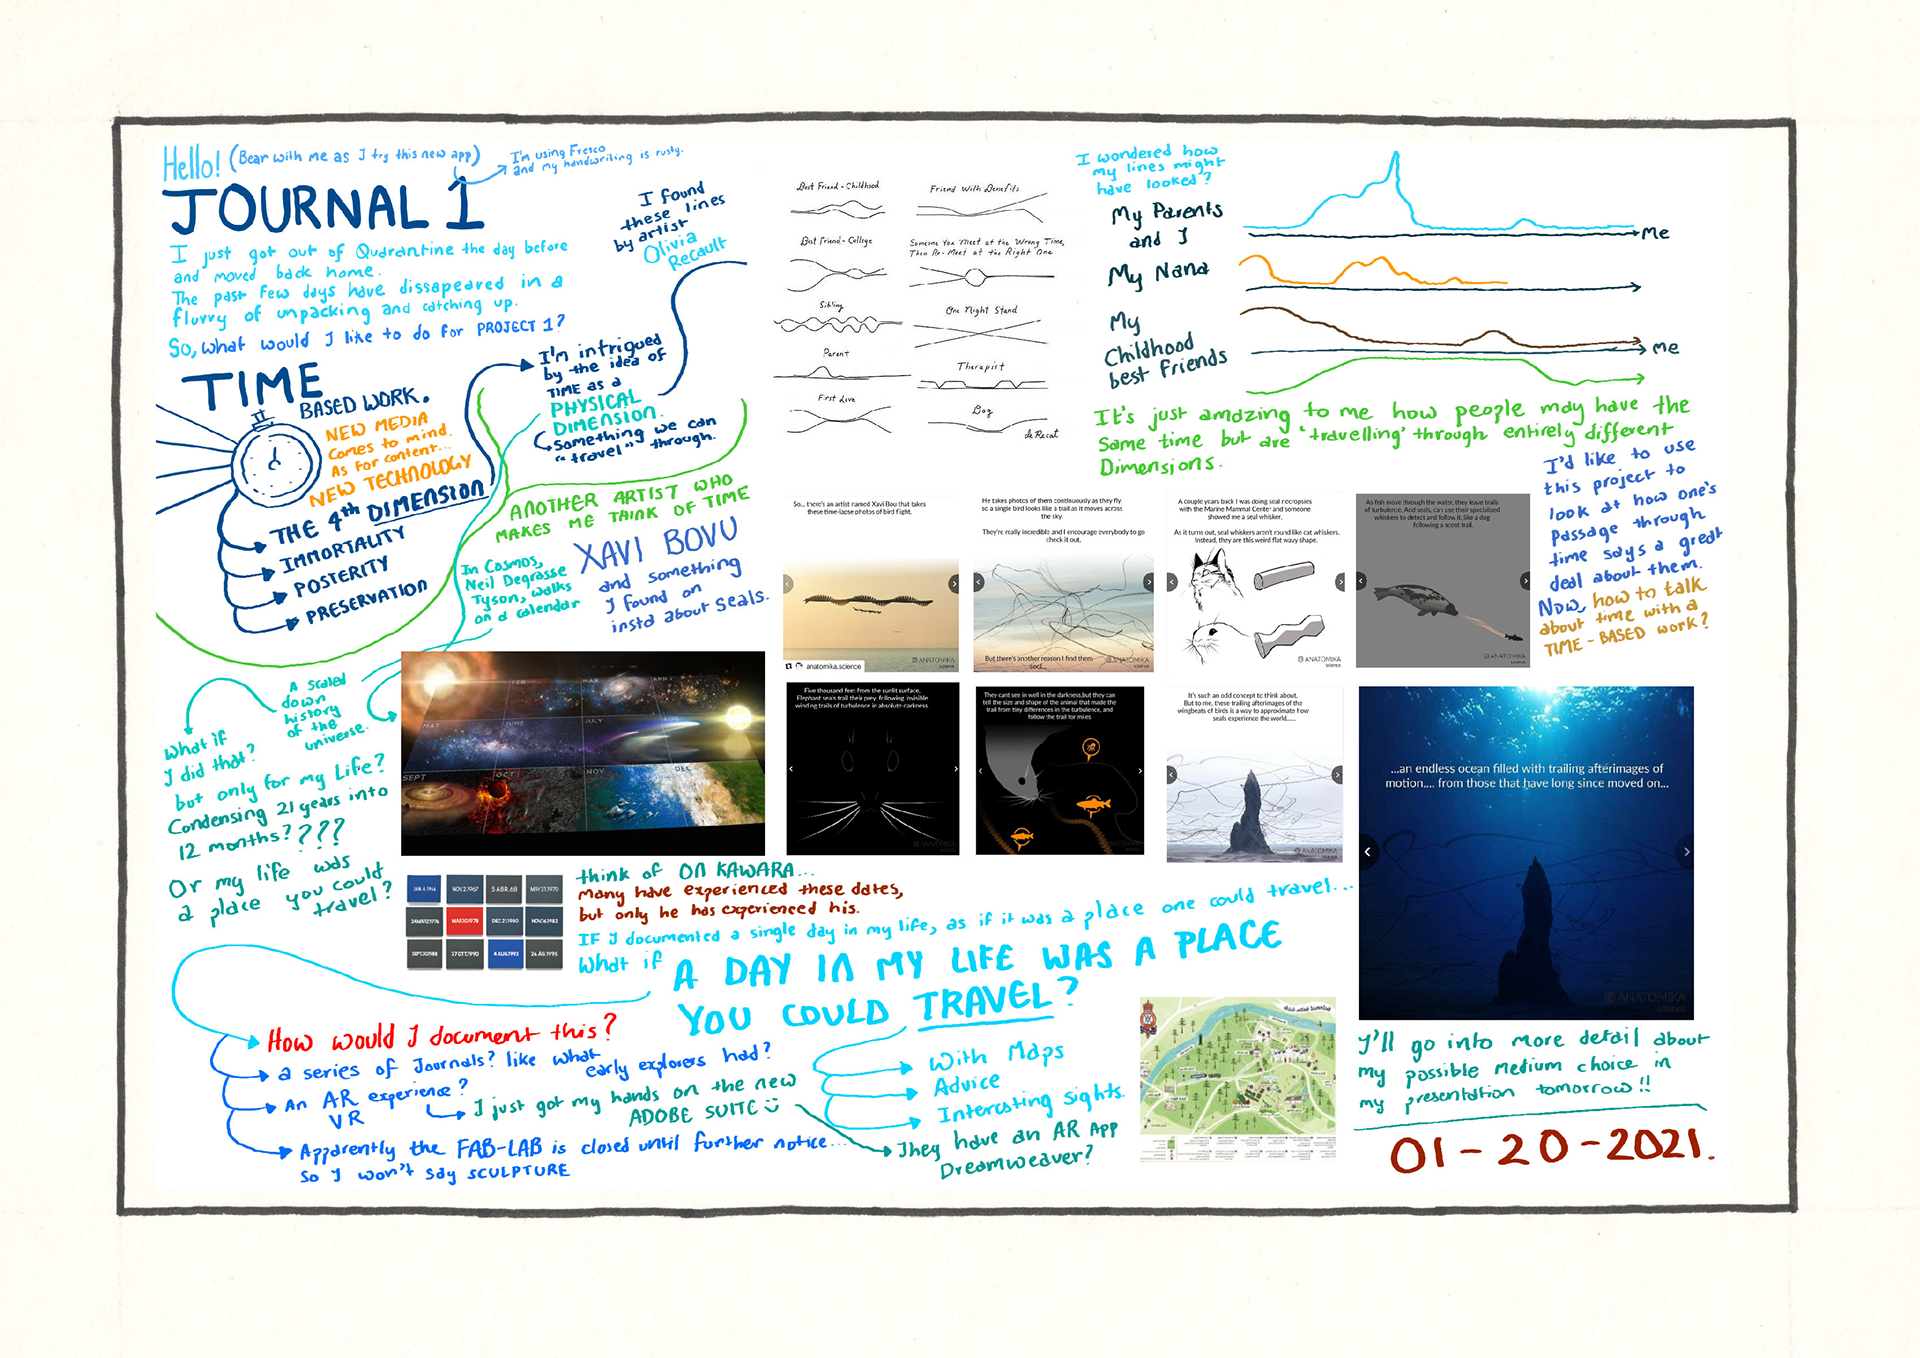 Hello! (Bear with me as I try this new app)
I'm using Fresco
and my handwriting is rusty.
JOURNAL 1
I just got out of Quarantine the day before
and moved back home.
The past few days have dissapeared in a
flurry of unpacking and catching up.
So, what would I like to do for PROJECT 1?
TIME
BASED WORK.
NEW MEDIA
comes to mind.
As for content...
NEW TECHNOLOGY
THE 4th DIMENSION
IMMORTALITY
POSTERITY
PRESERVATION
I'm intrigued
by the idea of
TIME as a
PHYSICAL
DIMENSION.
Something we can
"travel" through.
I found
these lines
by artist
Olivia
Recault
Best Friend - Childhood
Friend With Benefits
Best Friend - College
Someone You Meet at the Wrong Time,
Then Re-Meet at the Right One
Sibling
One Night Stand
Parent
Therapist
First Love
Dog
de Recat
I wondered how
my lines might
have looked?
My Parents
and I
Me
My Nana
My
Childhood
best friends
Me
It's just amazing to me how people may have the
Same time but are 'travelling' through entirely different
Dimensions.
ANOTHER ARTIST WHO
MAKES ME THINK OF TIME
XAVI BOVU
and something
I found on
insta about seals.
In Cosmos,
Neil Degrasse
Tyson, walks
on a calendar
So... there's an artist named Xavi Bou that takes
these time-lapse photos of bird flight.
anatomika.science
ANATOMIKA
science
He takes photos of them continuously as they fly,
so a single bird looks like a trail as it moves across
the sky.
They're really incredible and I encourage everybody to go
check it out.
But there's another reason I find them
cool...
ANATOMIKA
science
A couple years back I was doing seal necropsies
with the Marine Mammal Center and someone
showed me a seal whisker.
As it turns out, seal whiskers aren't round like cat whiskers.
Instead, they are this weird flat wavy shape.
ANATOMIKA
science
As fish move through the water, they leave trails
of turbulence. And seals, can use their specialized
whiskers to detect and follow it, like a dog
following a scent trail.
ANATOMIKA
science
I'd like to use
this project to
look at how one's
passage through
time says a great
deal about them.
Now, how to talk
about time with a
TIME-BASED work?
A scaled
down
history
of the
universe.
FEB
MAR
APRIL
MAY
JUNE
JULY
AUG
SEPT
OCT
NOV
DEC
Five thousand feet from the sunlit surface,
Elephant seals trail their prey, following invisible
winding trails of turbulence in absolute darkness
ANATOMIKA
They cant see in well in the darkness,but they can
tell the size and shape of the animal that made the
trail from tiny differences in the turbulence, and
follow the trail for miles
It's such an odd concept to think about.
But to me, these trailing afterimages of the
wingbeats of birds is a way to approximate how
seals experience the world......
ANATOMIKA
science
...an endless ocean filled with trailing afterimages of
motion.... from those that have long since moved on...
ANATOMIKA
science
What if
I did that?
but only for my Life?
Condensing 21 years into
12 months????
Or my life was
a place you could
travel?
JAN.4,1966
NOV.2.1967
5 ABR.68
MAY31,1970
24MARZ1976
MAR.30,1978
DEC.21,1980
NOV.16,1982
SEPT.30.1988
27 OTT.1990
4 AUG.1993
26.AG.1995
think of ON KAWARA...
many have experienced these dates,
but only he has experienced his.
IF I documented a single day in my life, as if it was a place one could travel...
What if A DAY IN MY LIFE WAS A PLACE
YOU COULD TRAVEL?
How would I document this?
a series of Journals? like what
early explorers had?
An AR experience?
VR
I just got my hands on the new
ADOBE SUITE
Apparently the FAB-LAB is closed until further notice...
so I won't say SCULPTURE
With Maps
Advice
Interesting sights.
They have an AR App
Dreamweaver?
I'll go into more detail about
my possible medium choice in
my presentation tomorrow!!
01-20-2021.